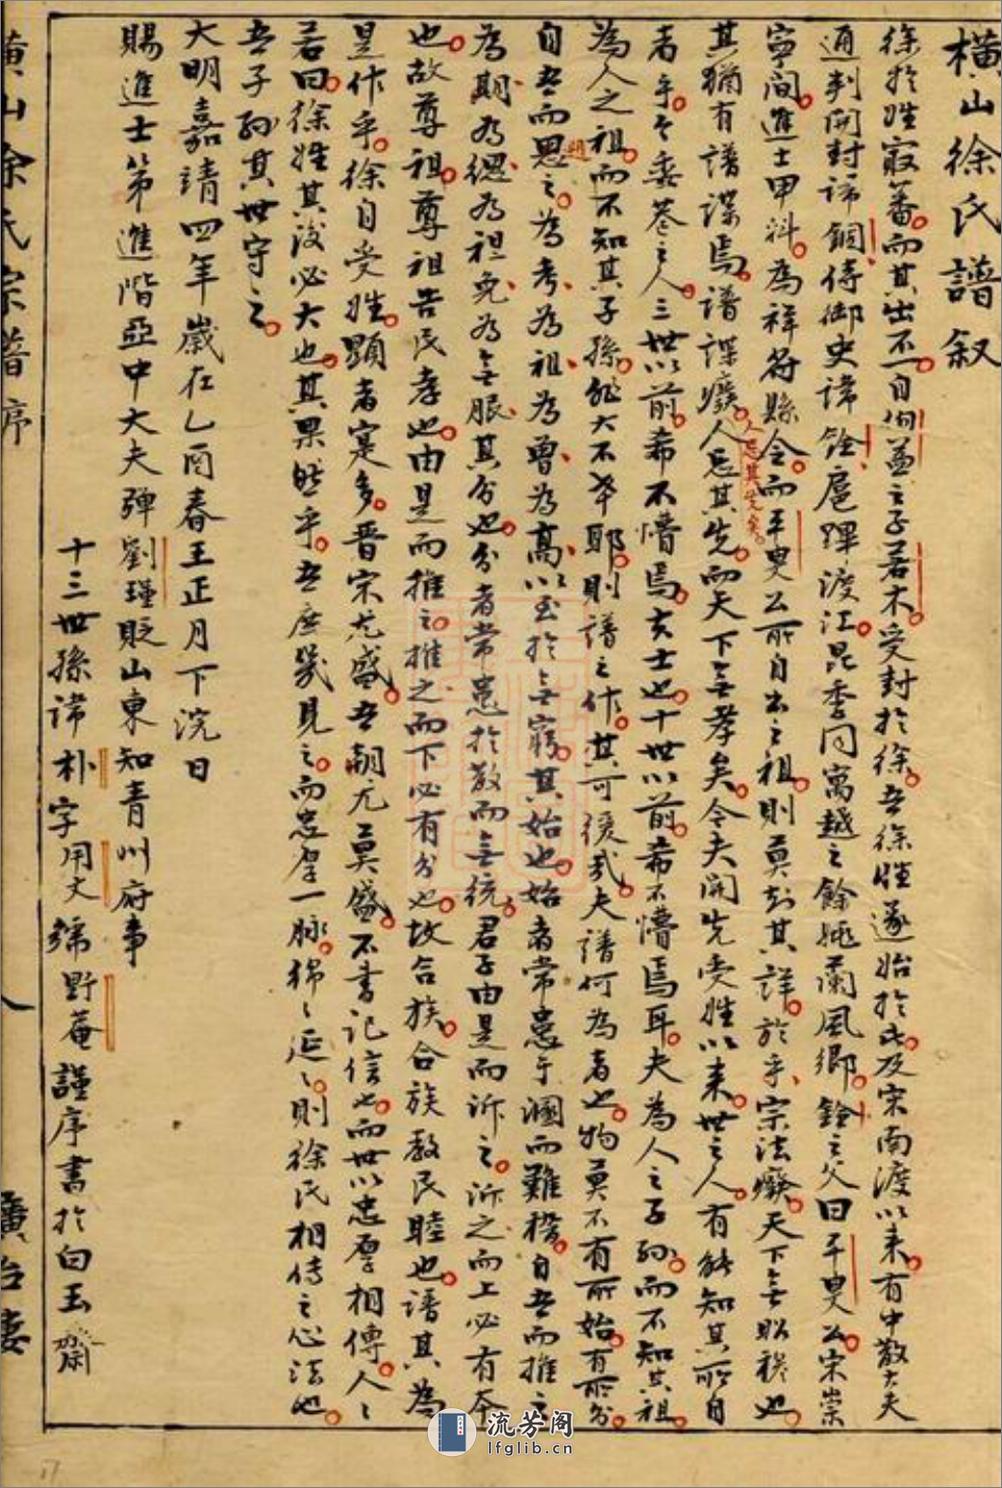 橫山徐氏譜叙
徐於姓宷蕃而其出不一自伯益之子若木受封於徐吾徐姓遂始於此及宋南渡以来有中散大夫
通判開封諱錮侍御史諱銓扈蹕渡江昆季同寓越之餘姚蘭風鄉銓之父曰平叟公宋崇
寧間進士甲科為祥符縣令而平叟公所自出之祖則莫招其詳於乎宗法癈天下無昭穆也
其猶有譜諜焉譜諜癈人忘其先而天下無孝矣今夫開先受姓以来世之人有能知其所自
人忘其先矣
者乎今委巷之人三世以前希不懵焉又士也十世以前希不懵焉耳夫為人之子孫而不知其祖
為人之祖而不知其子孫能大不本耶則譜之作其可緩哉夫譜何為者也物莫不有所始有所分
自吾而思之為考為祖為曽為高以至於無窮其始也始者常患于涸而難稽自吾而推之
為期為緦為袒免為無服其分也分者常患於散而無統君子由是而泝之泝之而上必有本
也故尊祖尊祖告民孝也由是而推之推之而下必有分也故合族合族教民睦也譜其為
是作乎徐自受姓顕者寔多晋宋尤盛吾朝尤莫盛不書記信也而世以忠厚相傳人々
若曰徐姓其後必大也其果然乎吾庶幾見之而忠厚一脉綿々延々則徐氏相傳之心法也
吾子孫其世守之
大明嘉靖四年歲在乙酉春王正月下浣日
賜進士第進階亞中大夫彈劉瑾貶山東知青州府事
十三世孫諱朴字用文號野菴謹序書於白玉齋
橫山徐氏宗譜序
八
流芳阁
lfglib.cn
17